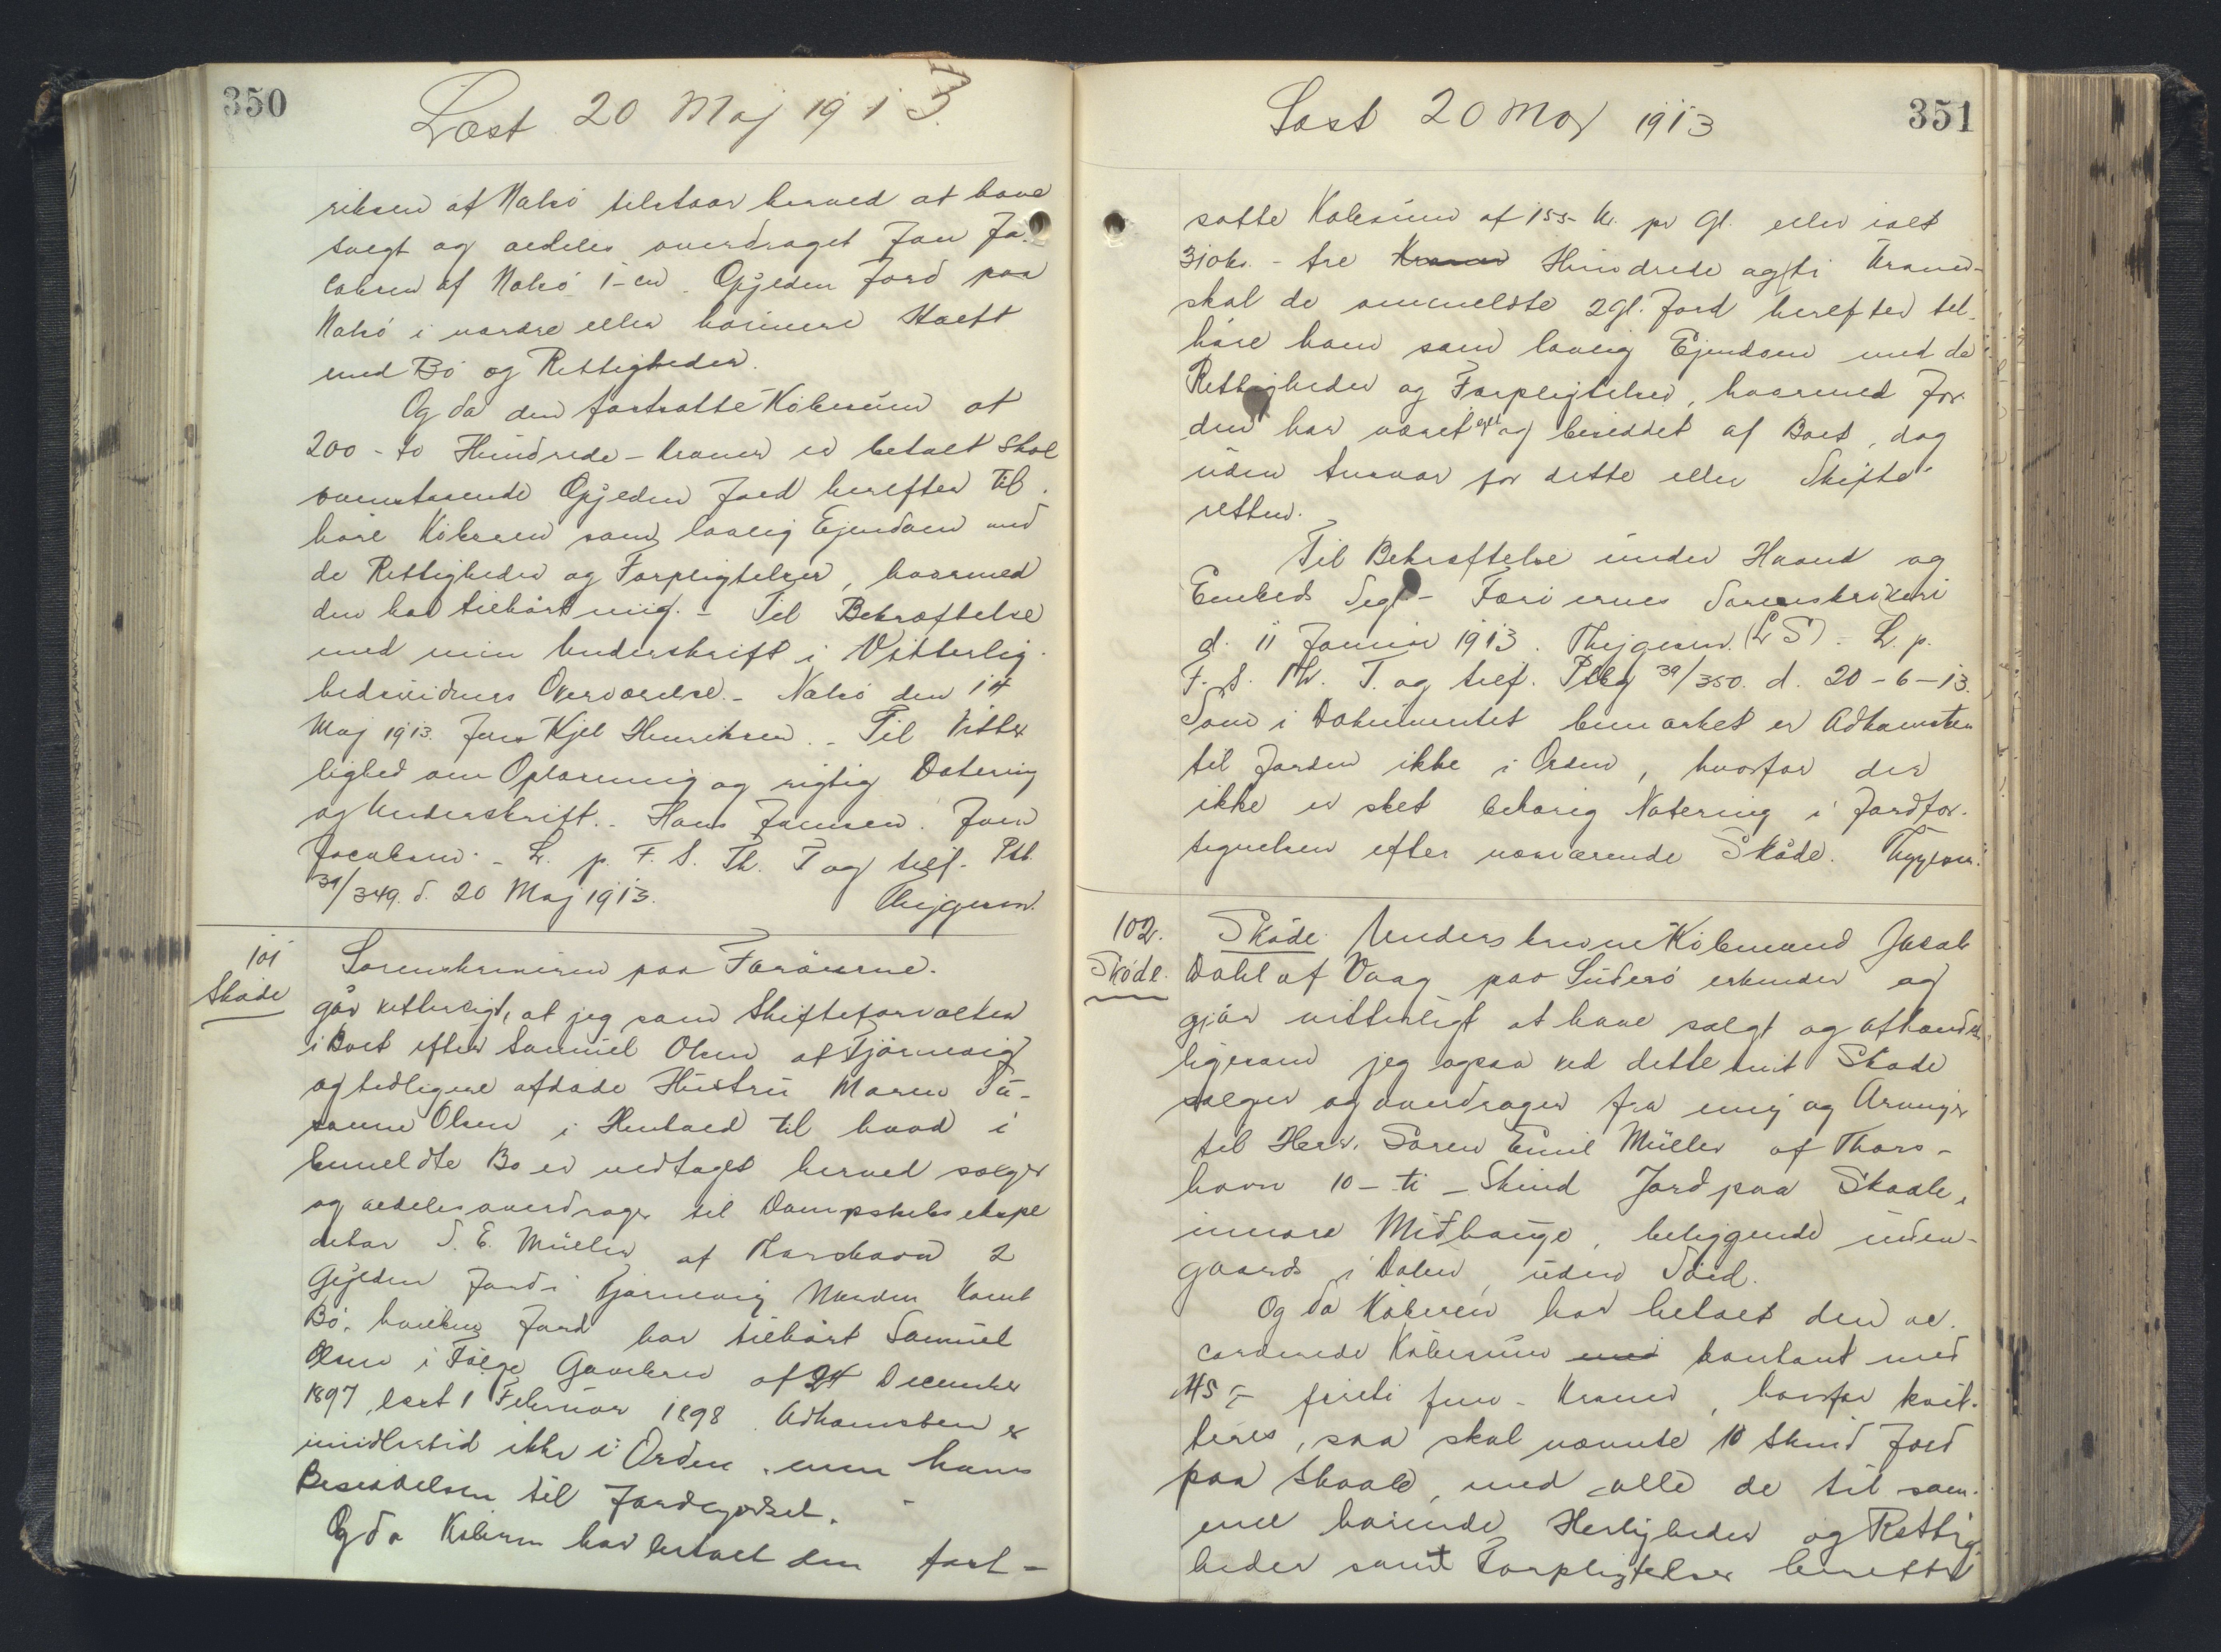 350
Læst 20 Maj 1913.
riksen af Nolsö tilstaar herved at have
solgt og aedeles overdraget Joen Ja-
cobsen af Nolsö 1-en Gylden Jord paa
Nolsö i nordre eller hørinere Haeft
med Bö og Rettigheder.
Og da den fastsatte Købesum at
200 - to Hundrede - Kroner er betalt skal
ovenstaaende Gylden Jord herefter til-
høre Köberen som lovlig Ejendom med
de Rettigheder og Forpligtelser, hvormed
den har tilhørt mig. - Til Bekræftelse
med min Underskrift i Vitterlig-
hedsvidners Overværelse. - Nolsö den 14
Maj 1913. Jens Kjel Henriksen. - Til Vitter
lighed om Oplæsning og rigtig Datering
og Underskrift. - Hans Joensen. Joen
Jacobsen. - L. p. F. S. Th. T og tilf. Ptb.
39/349. d. 20 Maj 1913. Thejgersen.
101
Skøde
Sorenskriveren paa Færöerne.
gør vitterligt, at jeg som Skifteforvalter
i Boet efter Samuel Olsen af Tjörnevig
og tidligere afdøde Hustru Maren Su-
sanne Olsen i Henhold til hvad i
bemeldte Bo er vedtaget herved sælger
og aedeles overdrager til Dampskibsekspe
ditør S. E. Müller af Thorshavn 2
Gylden Jord i Tjørnevig Norden
Bö, hvilken Jord har tilhørt Samuel
Olsen i Følge Gavebrev af 24 December
1897, læst 1 Februar 1898. Adkomsten er
imidlertid ikke i Orden, men hans
Besiddelsen til Jordegodset.
Og da Køberen har betalt den fast-
351
Læst 20 Maj 1913
satte Købesum af 155- Kr. pr Gl. eller ialt
310 kr. - tre Kroner Hundrede og ti Kroner-
skal de ommeldte 2 Gl. Jord herefter til-
høre ham som lovlig Ejendom med de
Rettigheder og Forpligtelser, hvormed Jor-
den har været ejet og besiddet af Boet, dog
uden Ansvar for dette eller Skifte-
retten. -
Til Bekræftelse under Haand og
Embeds Segl - Færöernes Sorenskriveri
d. 11 Januar 1913. Thejgersen. (L S) - L. p.
F. S. Th. T. og tilf. Ptbg 39/350. d. 20-6-13.
Som i Dokumentet bemærket er Adkomsten
til Jorden ikke i Orden, hvorfor der
ikke er sket behørig Notering i Jordfor-
tegnelsen efter nærværende Skøde. Thejgersen.
102.
Skøde.
Skøde. Underskrevne Købmand Jacob
Dahl af Vaag paa Suderö erkender og
gjør vitterligt at have solgt og afhændet
ligesom jeg ogsaa ved dette mit Skøde
sælger og overdrager fra mig og Arvinger
til Herr. Søren Emil Müller af Thors-
havn 10 - ti - Skind Jord paa Skaale,
innara Miðhauge, beliggende uden-
gaards i Dalen, uden Saed.
Og da Køberen har betalt den ac-
corderede Købesum med kontant med
45 - firti fem - Kroner, hvorfor kvit-
teres, saa skal nævnte 10 Skind Jord
paa Skaale, med alle de til sam-
me hørende Herligheder og Rettig-
heder samt Forpligtelser herefter